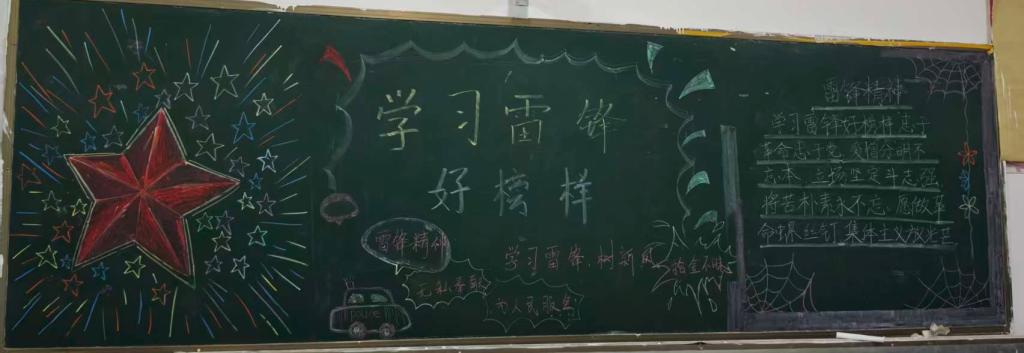 学习雷锋
好榜样
雷锋精神
无私奉献
学习雷锋 树新风
为人民服务
拾金不昧
police
雷锋精神
学习雷锋好榜样忠于
革命忠于党 爱憎分明不
忘本 立场坚定斗志强
将苦朴素永不忘 愿做革
命螺丝钉 集体主义放光芒